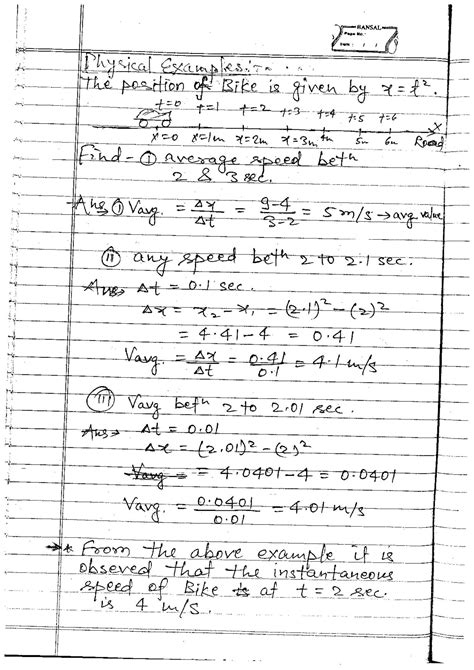 BANSAL
Page No.:
Date: / /
Physical Examples:-
The position of Bike is given by x = t².
t=0 t=1 t=2 t=3 t=4 t=5 t=6
x=0 x=1m x=2m x=3m 5m 6m Road
X
Find - ① average speed betⁿ
2 & 3 sec.
Ans ① Vavg. = Δx/Δt = 9-4/3-2 = 5 m/s → avg value
⑪ any speed betⁿ 2 to 2.1 sec.
Ans → Δt = 0.1 sec.
Δx = x₂ - x₁ = (2.1)² - (2)²
= 4.41 - 4 = 0.41
Vavg. = Δx/Δt = 0.41/0.1 = 4.1 m/s
(III) Vavg betⁿ 2 to 2.01 sec.
Ans → Δt = 0.01
Δx = (2.01)² - (2)²
Vavg = = 4.0401 - 4 = 0.0401
Vavg. = 0.0401/0.01 = 4.01 m/s
→* From the above example it is
obseved that the instantaneous
speed of Bike is at t = 2 sec.
is 4 m/s.